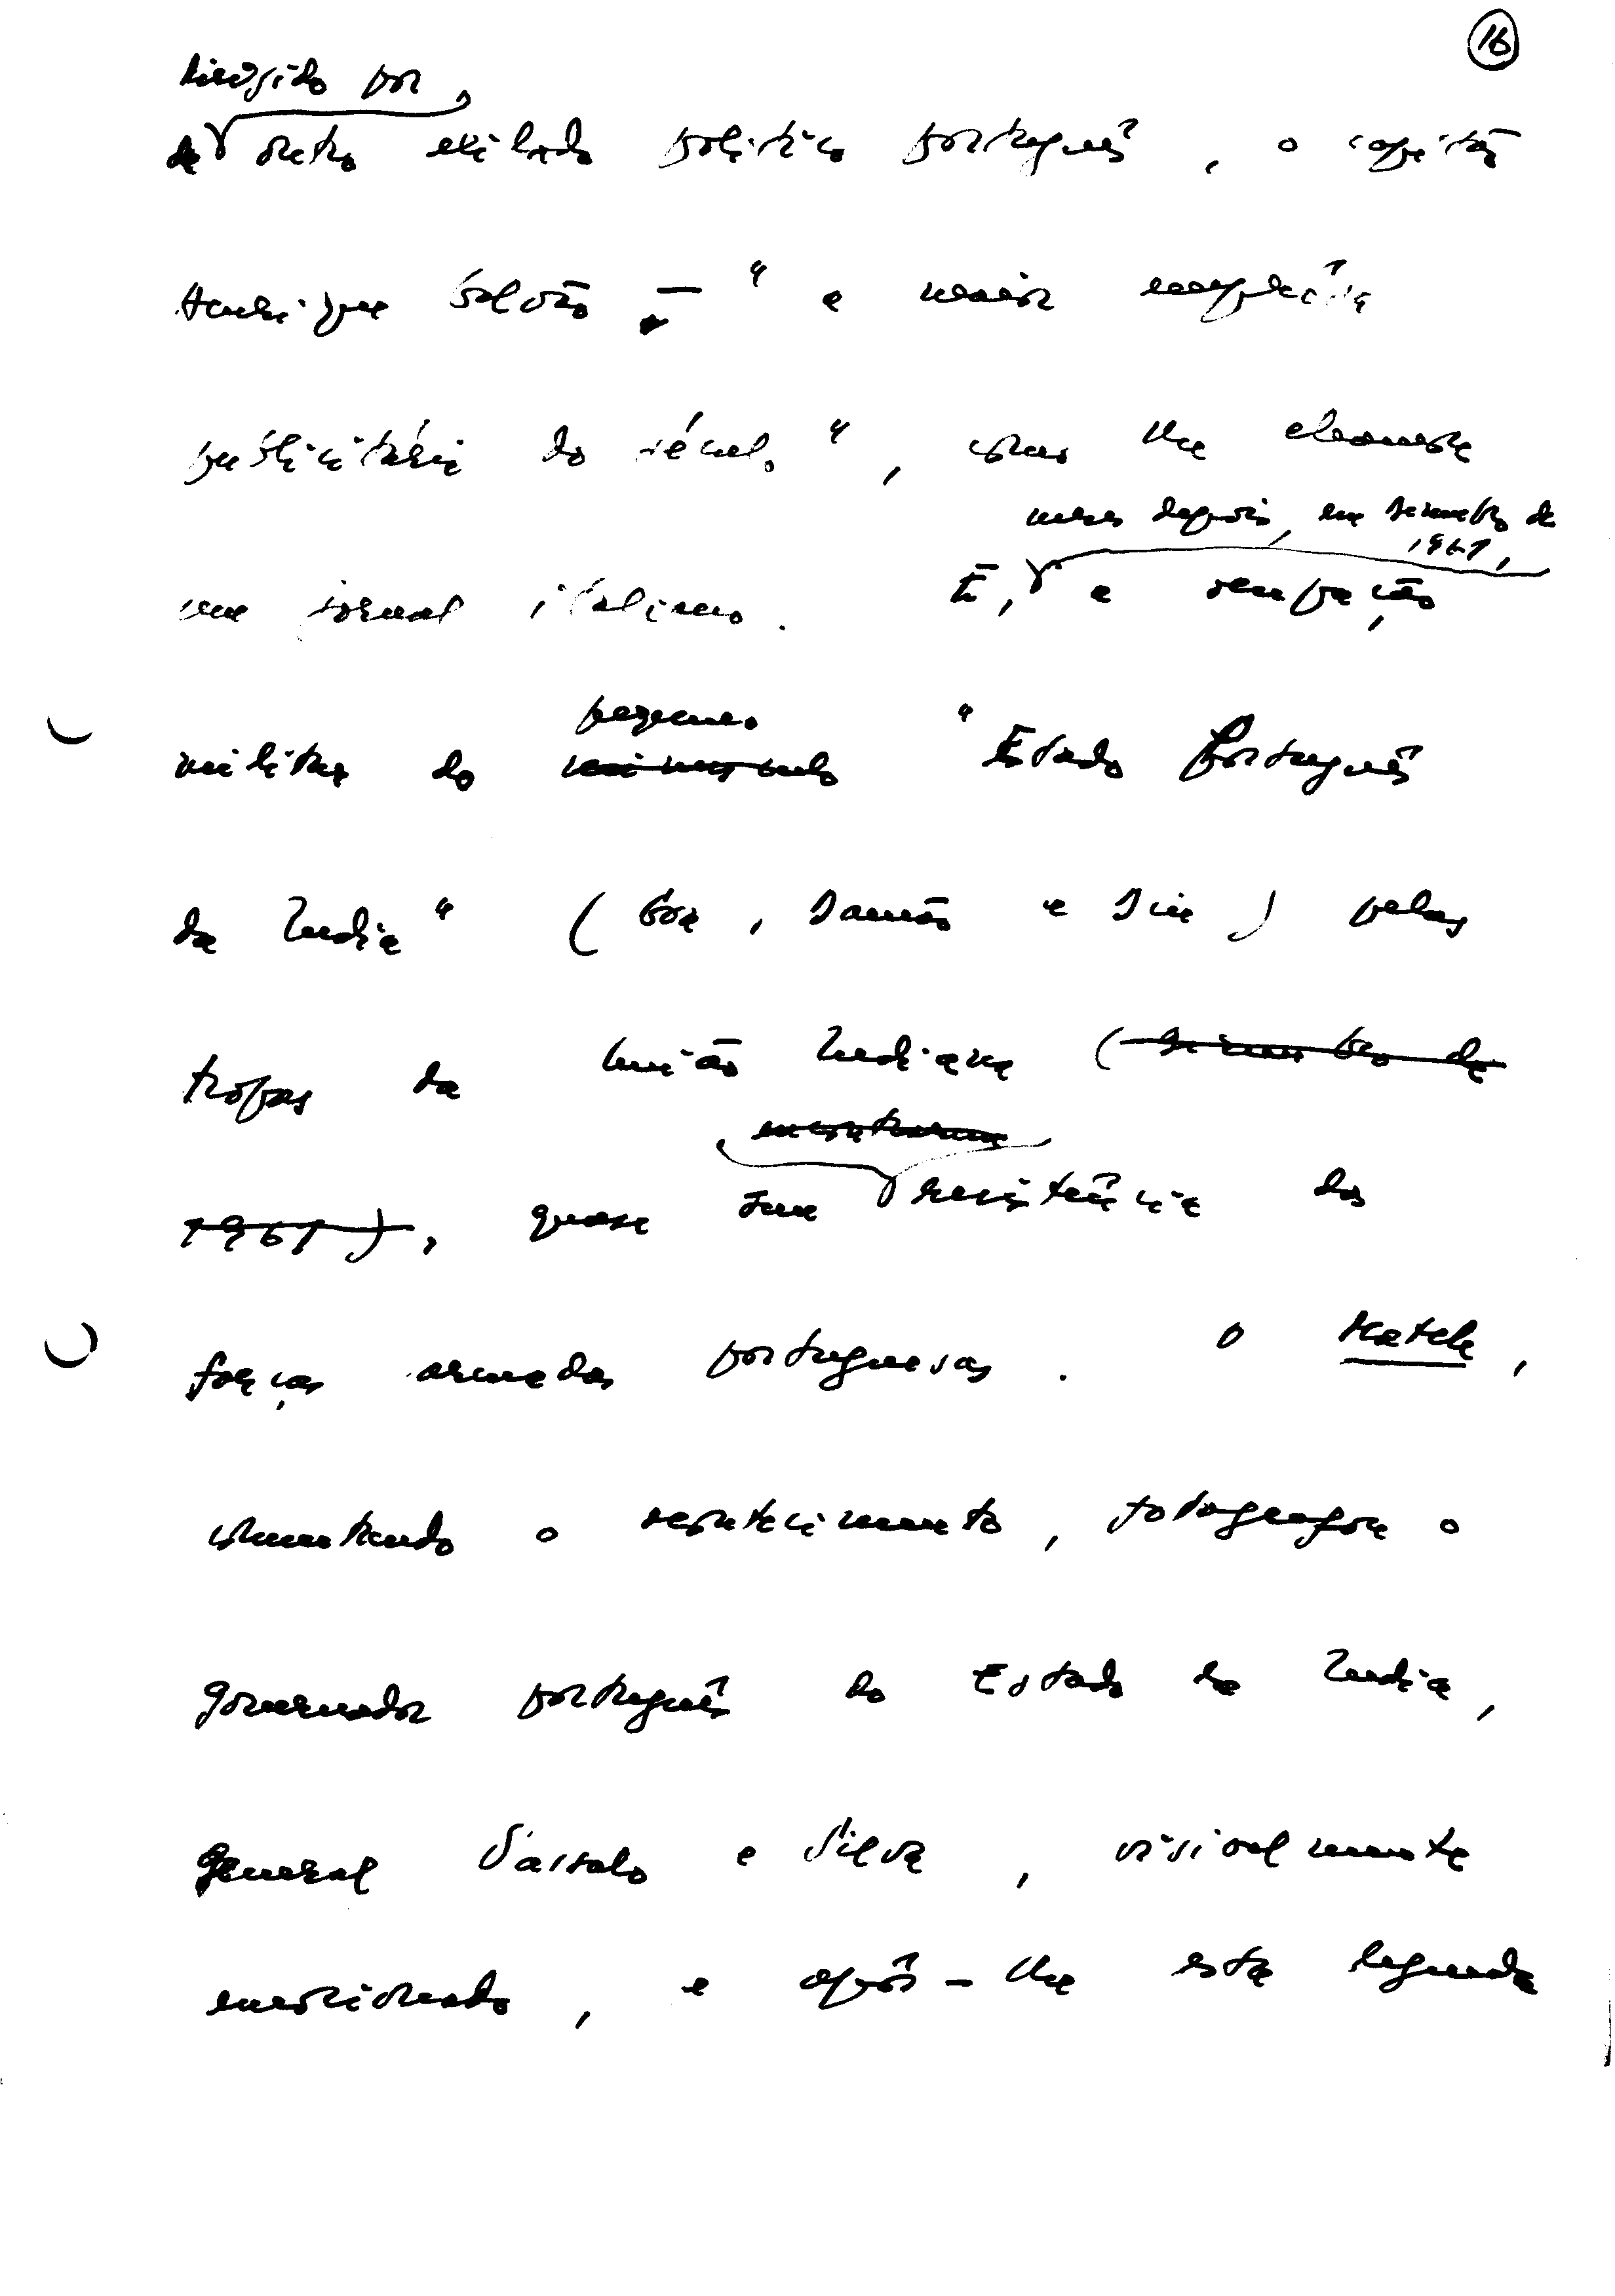 16
dirigido por
de outro exilado político português, o capitão
Henrique Galvão — "a maior
publicitária do século", como lhe chamou
meses depois, em dezembro de
1961,
um jornal italiano. E, a ocupação
pequeno
militar do minúsculo "Estado Português
da Índia" (Goa, Damão e Diu) pelas
tropas da União Indiana (dezembro de
encontrarem
1961), quase sem resistência das
forças armadas portuguesas. O Match,
comentando o acontecimento, fotografou o
governador português do Estado da Índia,
general Vassalo e Silva, visivelmente
emocionado, e após-lhe esta legenda